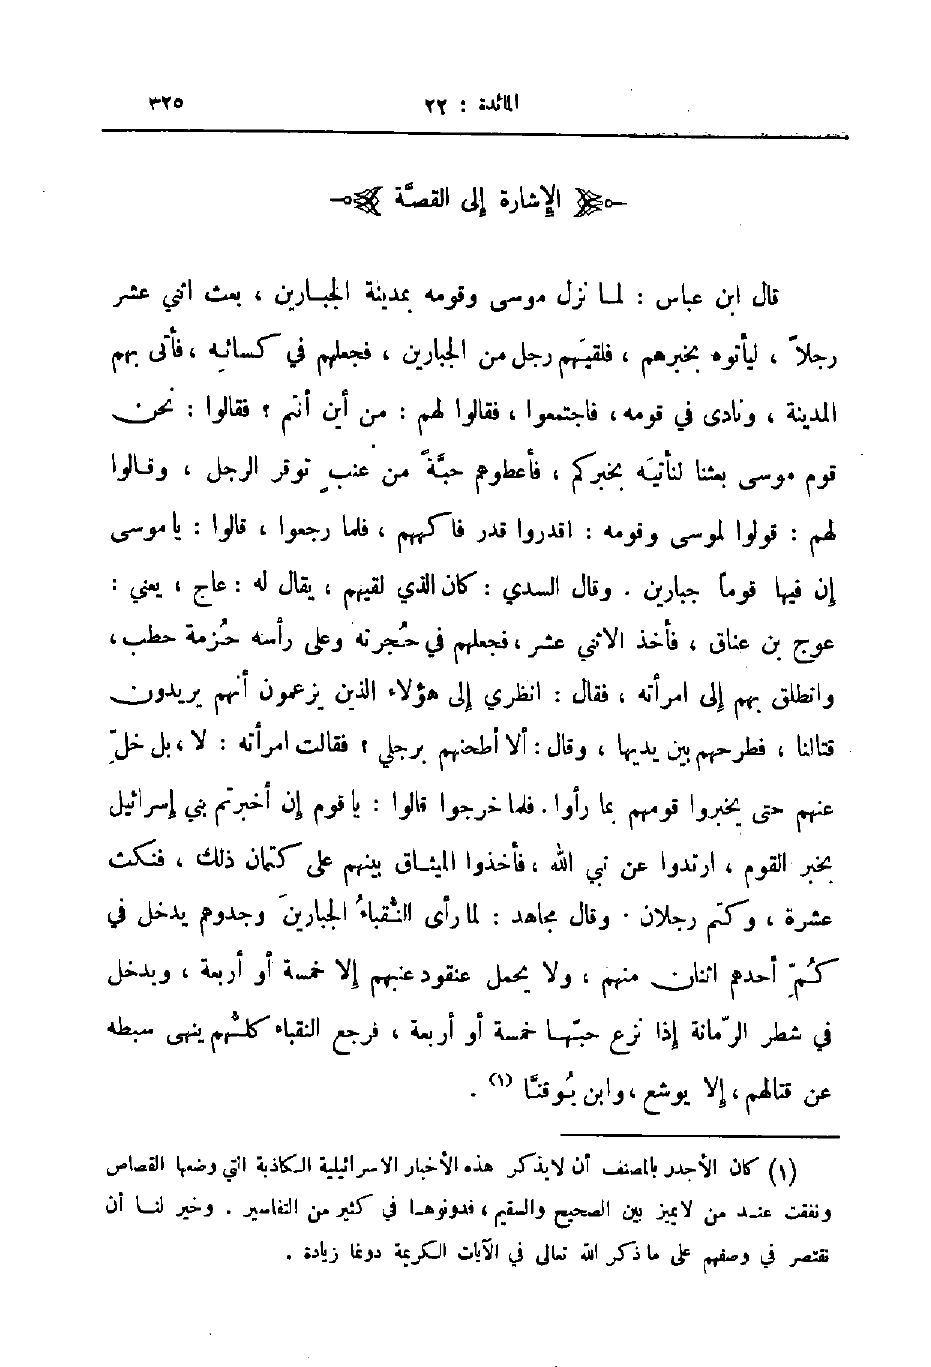 المائدة : ٢٢ ٣٢٥
الإشارة إلى القصَّة
قال ابن عباس : لما نزل موسى وقومه بمدينة الجبارين ، بعث اثني عشر
رجلاً ، ليأتوه بخبرهم ، فلقيَهم رجل من الجبارين ، فجعلهم في كسائه ، فأتى بهم
المدينة ، ونادى في قومه ، فاجتمعوا ، فقالوا لهم : من أين أنتم ؟ فقالوا : نحن
قوم موسى بعثنا لنأتيَه بخبركم ، فأعطوهم حبَّةً من عنبٍ توقر الرجل ، وقالوا
لهم : قولوا لموسى وقومه : اقدروا قدر فاكهتهم ، فلما رجعوا ، قالوا : يا موسى
إن فيها قوماً جبارين . وقال السدي : كان الذي لقيهم ، يقال له : عاج ، يعني :
عوج بن عناق ، فأخذ الاثني عشر ، فجعلهم في حُجرته وعلى رأسه حُزمة حطب ،
وانطلق بهم إلى امرأته ، فقال : انظري إلى هؤلاء الذين يزعمون أنهم يريدون
قتالنا ، فطرحهم بين يديها ، وقال : ألا أطحنهم برجلي ؟ فقالت امرأته : لا ، بل خلِّ
عنهم حتى يخبروا قومهم بما رأوا . فلما خرجوا قالوا : يا قوم إن أخبرتم بني إسرائيل
بخبر القوم ، ارتدوا عن نبي الله ، فأخذوا الميثاق بينهم على كتمان ذلك ، فنكث
عشرة ، وكتم رجلان . وقال مجاهد : لما رأى النُّقباءُ الجبارينَ وجدوهم يدخل في
كُمِّ أحدهم اثنان منهم ، ولا يحمل عنقود عنبهم إلا خمسة أو أربعة ، ويدخل
في شطر الرّمانة إذا نزع حبّها خمسة أو أربعة ، فرجع النقباء كلُّهم ينهى سبطه
عن قتالهم ، إلا يوشع ، وابن يُوقنَّا (١) .
(١) كان الأجدر بالمصنف أن لا يذكر هذه الأخبار الاسرائيلية الكاذبة التي وضعها القصاص
ونفقت عند من لا يميز بين الصحيح والسقيم ، فدونوها في كثير من التفاسير . وخير لنا أن
نقتصر في وصفهم على ما ذكر الله تعالى في الآيات الكريمة دونما زيادة .